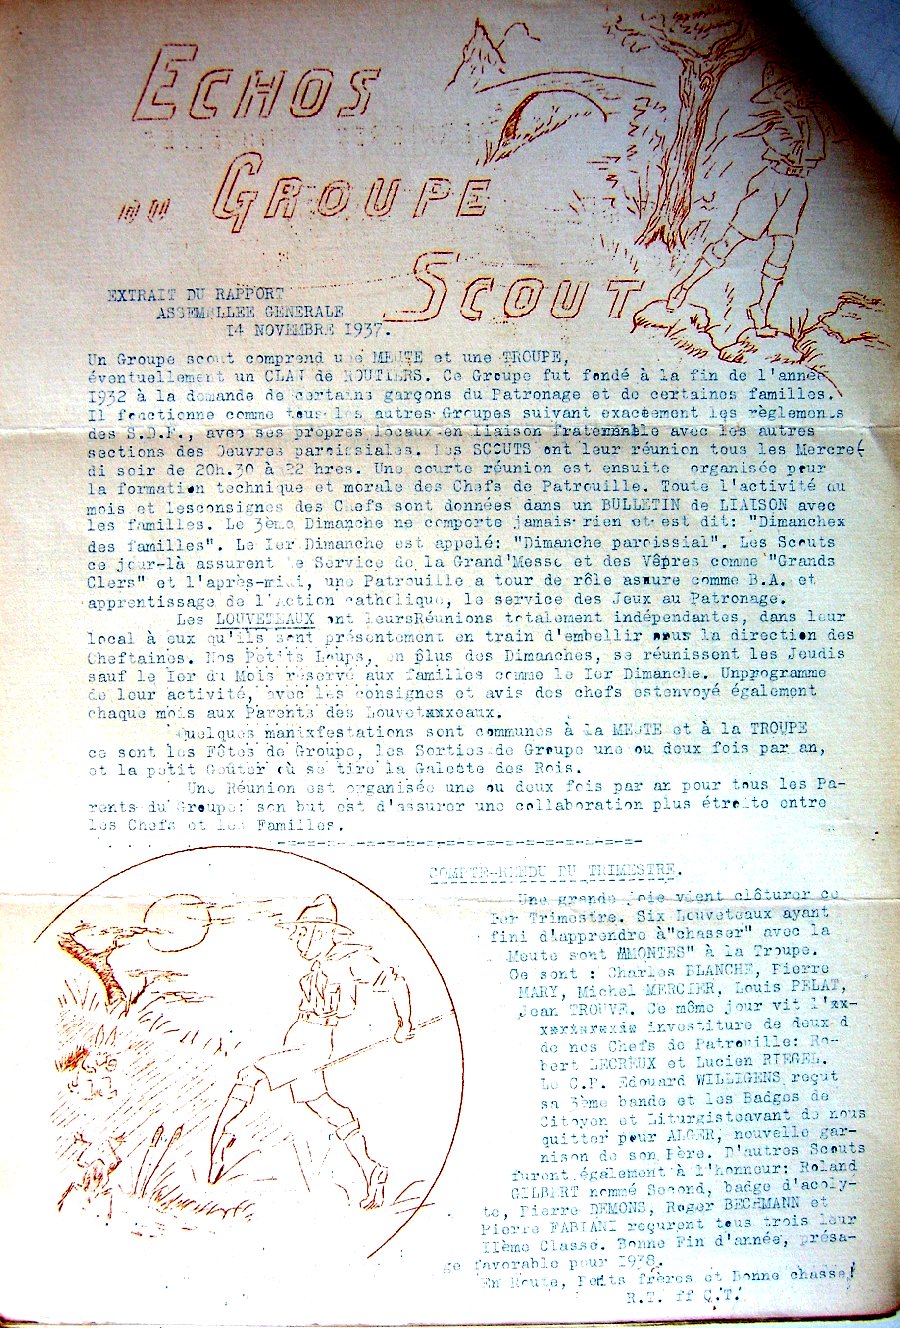 ECHOS
DU GROUPE
SCOUT
EXTRAIT DU RAPPORT
ASSEMBLEE GENERALE
14 NOVEMBRE 1937.
Un Groupe scout comprend une MEUTE et une TROUPE,
éventuellement un CLAN de ROUTIERS. Ce Groupe fut fondé à la fin de l'année
1932 à la demande de certains garçons du Patronage et de certaines familles.
Il fonctionne comme tous les autres Groupes suivant exactement les règlements
des S.D.F., avec ses propres locaux en liaison fraternelle avec les autres
sections des Oeuvres paroissiales. Les SCOUTS ont leur réunion tous les Mercre-
di soir de 20h.30 à 22 hres. Une courte réunion est ensuite organisée pour
la formation technique et morale des Chefs de Patrouille. Toute l'activité du
mois et lesconsignes des Chefs sont données dans un BULLETIN de LIAISON avec
les familles. Le 3ème Dimanche ne comporte jamais rien et est dit: "Dimanchex
des familles". Le Ier Dimanche est appelé: "Dimanche paroissial". Les Scouts
ce jour-là assurent le Service de la Grand'Messe et des Vêpres comme "Grands
Clers" et l'après-midi, une Patrouille a tour de rôle assure comme B.A. et
apprentissage de l'Action catholique, le service des Jeux au Patronage.
Les LOUVETEAUX ont leursRéunions totalement indépendantes, dans leur
local à eux qu'ils sont présentement en train d'embellir sous la direction des
Cheftaines. Nos Petits Loups, en plus des Dimanches, se réunissent les Jeudis
sauf le Ier du Mois réservé aux familles comme le Ier Dimanche. Unprogramme
de leur activité, avec les consignes et avis des chefs estenvoyé également
chaque mois aux Parents des Louvetxxxeaux.
Quelques manixfestations sont communes à la MEUTE et à la TROUPE
ce sont les Fêtes de Groupe, les Sorties de Groupe une ou deux fois par an,
et la petit Goûter où se tire la Galette des Rois.
Une Réunion est organisée une ou deux fois par an pour tous les Pa-
rents du Groupe: son but est d'assurer une collaboration plus étroite entre
les Chefs et les Familles.
COMPTE-RENDU DU TRIMESTRE.
Une grande joie vient clôturer ce
Ier Trimestre. Six Louveteaux ayant
fini d'apprendre à"chasser" avec la
Meute sont "MONTES" à la Troupe.
Ce sont : Charles BLANCHE, Pierre
MARY, Michel MERCIER, Louis PELAT,
Jean TROUVE. Ce même jour vit l'xx-
investiture de deux d
de nos Chefs de Patrouille: Ro-
bert LECREUX et Lucien RIEGEL.
Le C.P. Edouard WILLIGENS reçut
sa 3ème bande et les Badges de
Citoyen et Liturgisteavant de nous
quitter pour ALGER, nouvelle gar-
nison de son Père. D'autres Scouts
furent également à l'honneur: Roland
GILBERT nommé Second, badge d'acoly-
te, Pierre DEMONS, Roger BECHMANN et
Pierre FABIANI reçurent tous trois leur
IIème Classe. Bonne Fin d'année, présa-
ge favorable pour 1938.
En Route, Petits frères et Bonne chasse!
R.T. ff C.T.